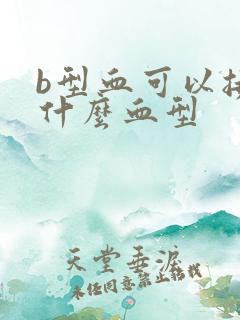 b型血可以接
什麼血型
天堂垂淚
未经同意禁止转载